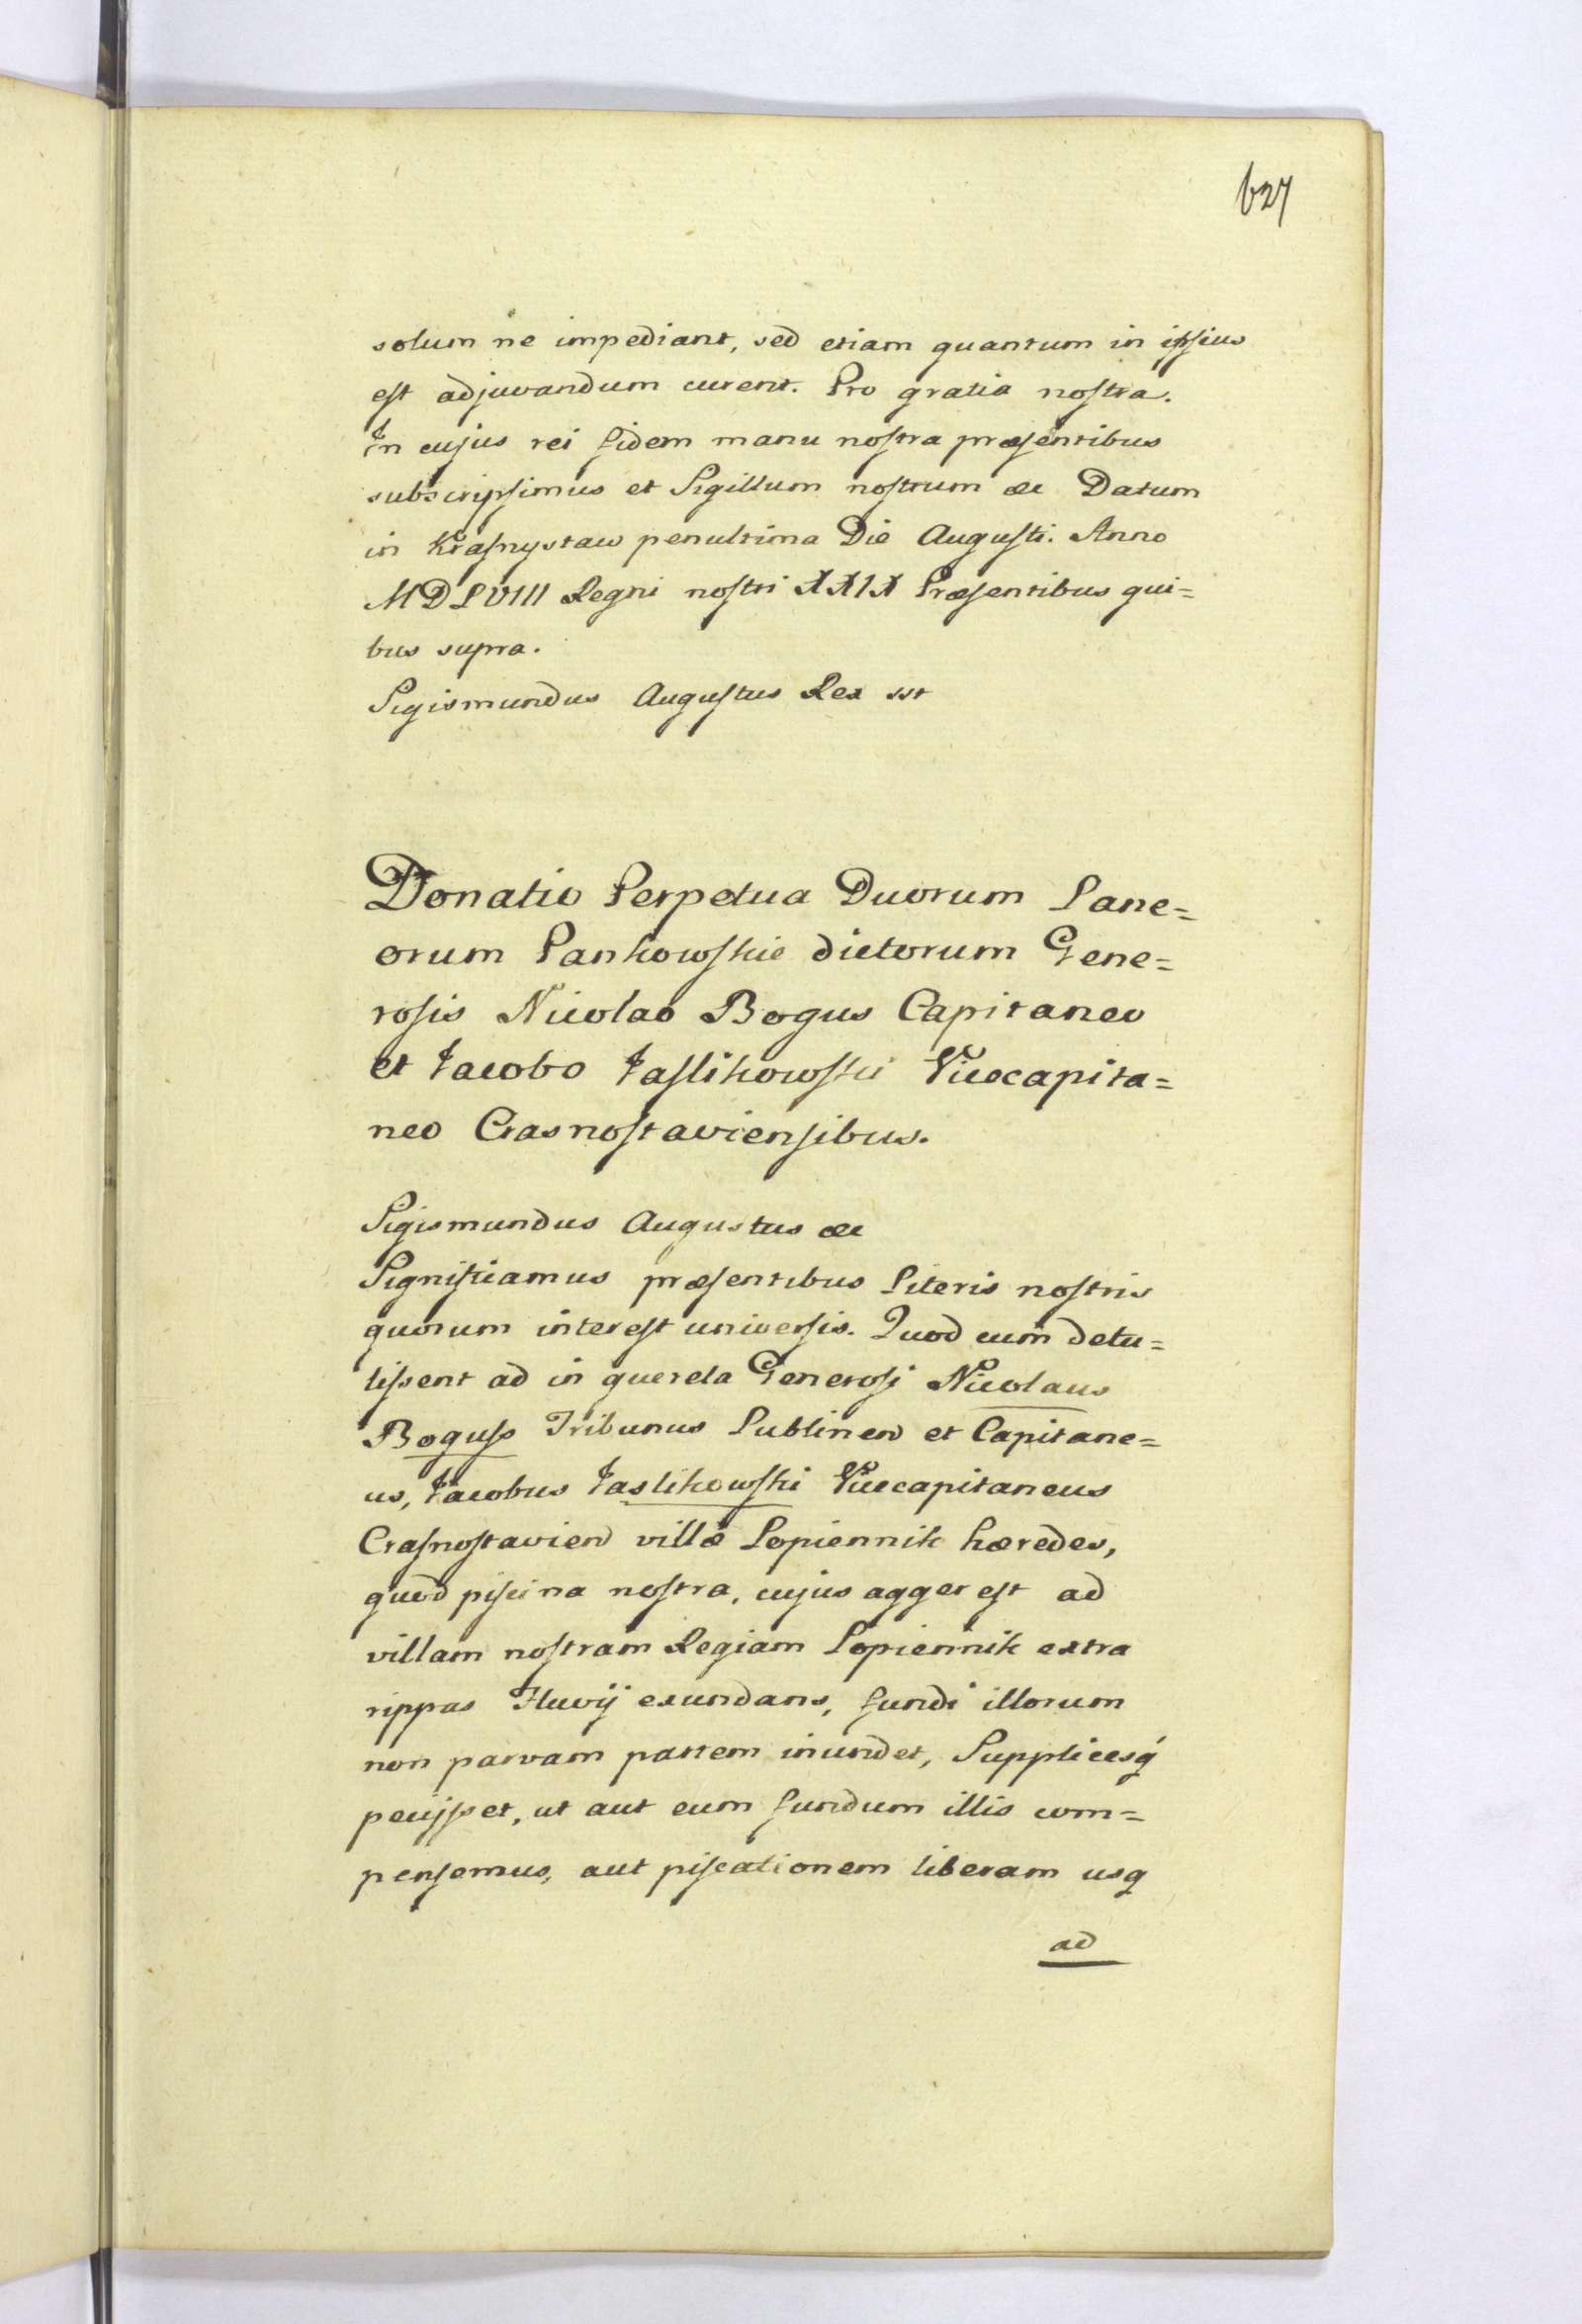 627
solum ne impediant, sed etiam quantum in ipsius
est adjuvandum curent. Pro gratia nostra.
In cujus rei fidem manu nostra præsentibus
subscripsimus et Sigillum nostrum &c Datum
in Krasnystaw penultima Die Augusti. Anno
MDLVIII Regni nostri XXIX Præsentibus qui=
bus supra.
Sigismundus Augustus Rex sst
Donatio Perpetua Duorum Lane=
orum Pankowskie dictorum Gene=
rosis Nicolao Bogus Capitaneo
et Jacobo Jaslikowski Vicecapita=
neo Crasnostaviensibus.
Sigismundus Augustus &c
Significamus præsentibus Literis nostris
quorum interest universis. Quod cum detu=
lissent ad in querela Generosi Nicolaus
Boguss Tribunus Lublinen et Capitane=
us, Jacobus Jaslikowski Vicecapitaneus
Crasnostavien villæ Lopiennik hæredes,
quod piscina nostra, cujus agger est ad
villam nostram Regiam Lopiennik extra
rippas Fluvij exundans, fundi illorum
non parvam partem inundet, Supplicesq
petijsset, ut aut eum fundum illis com=
pensemus, aut piscationem liberam usq
ad